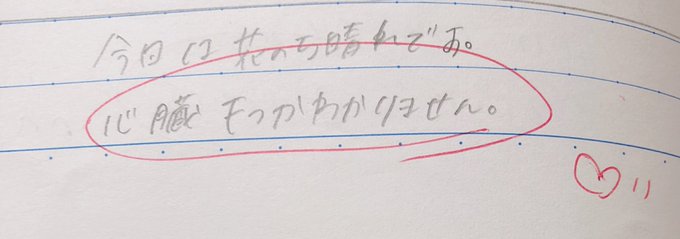 今日は花のち晴れです。
心臓もつかわかりません。